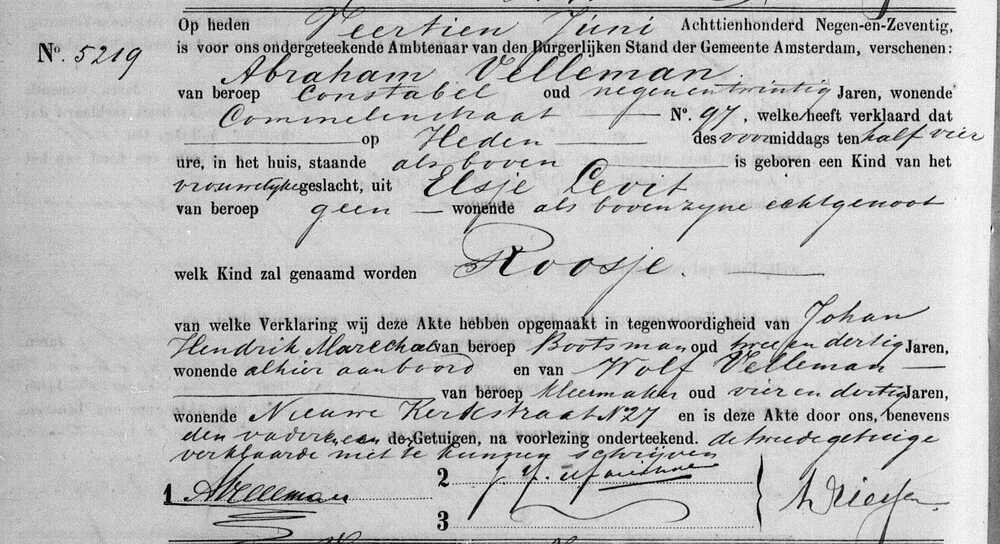 Op heden Veertien Juni Achttienhonderd Negen-en-Zeventig,
No. 5219
is voor ons ondergeteekende Ambtenaar van den Burgerlijken Stand der Gemeente Amsterdam, verschenen:
Abraham Velleman
van beroep Constabel oud negenentwintig Jaren, wonende
Commelenstraat No. 97, welke heeft verklaard dat
op Heden des voormiddags ten half vier
ure, in het huis, staande als boven is geboren een Kind van het
vrouwelijke geslacht, uit Elsje Levit
van beroep geen wonende als boven zyne echtgenoot
welk Kind zal genaamd worden Roosje.
van welke Verklaring wij deze Akte hebben opgemaakt in tegenwoordigheid van Johan
Hendrik Marechal van beroep Bootsman oud twee en dertig Jaren,
wonende alhier aan boord en van Wolf Velleman
van beroep kleermaker oud vier en dertig Jaren,
wonende Nieuwe Kerkstraat N 27 en is deze Akte door ons, benevens
den vader en de Getuigen, na voorlezing onderteekend. de tweede getuige
verklaarde niet te kunnen schrijven
1 AVelleman 2
3